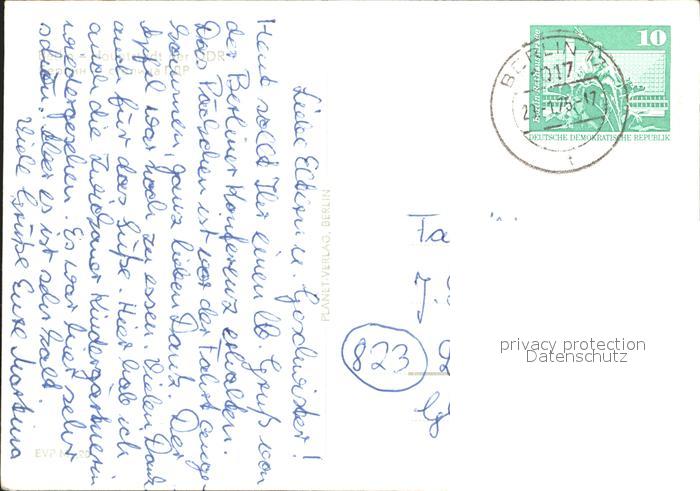 Liebe Eltern u. Geschwister!
Heut sollt Ihr einen lb. Gruß von
der Berliner Konferenz erhalten.
Das Päckchen ist vor der Fahrt ange-
kommen, ganz lieben Dank. Der
Apfel war noch zu essen. Vielen Dank
auch für das Süße. Hier hab ich
auch die Zwickauer Kindergärtnerin
wiedergesehen. Es war hier sehr
schön. Aber es ist sehr kalt.
Viele Grüße Eure Martina
DDR
EVP
PLANET-VERLAG, BERLIN
10
DEUTSCHE DEMOKRATISCHE REPUBLIK
BERLIN
1017
Fa
J.
823
privacy protection
Datenschutz